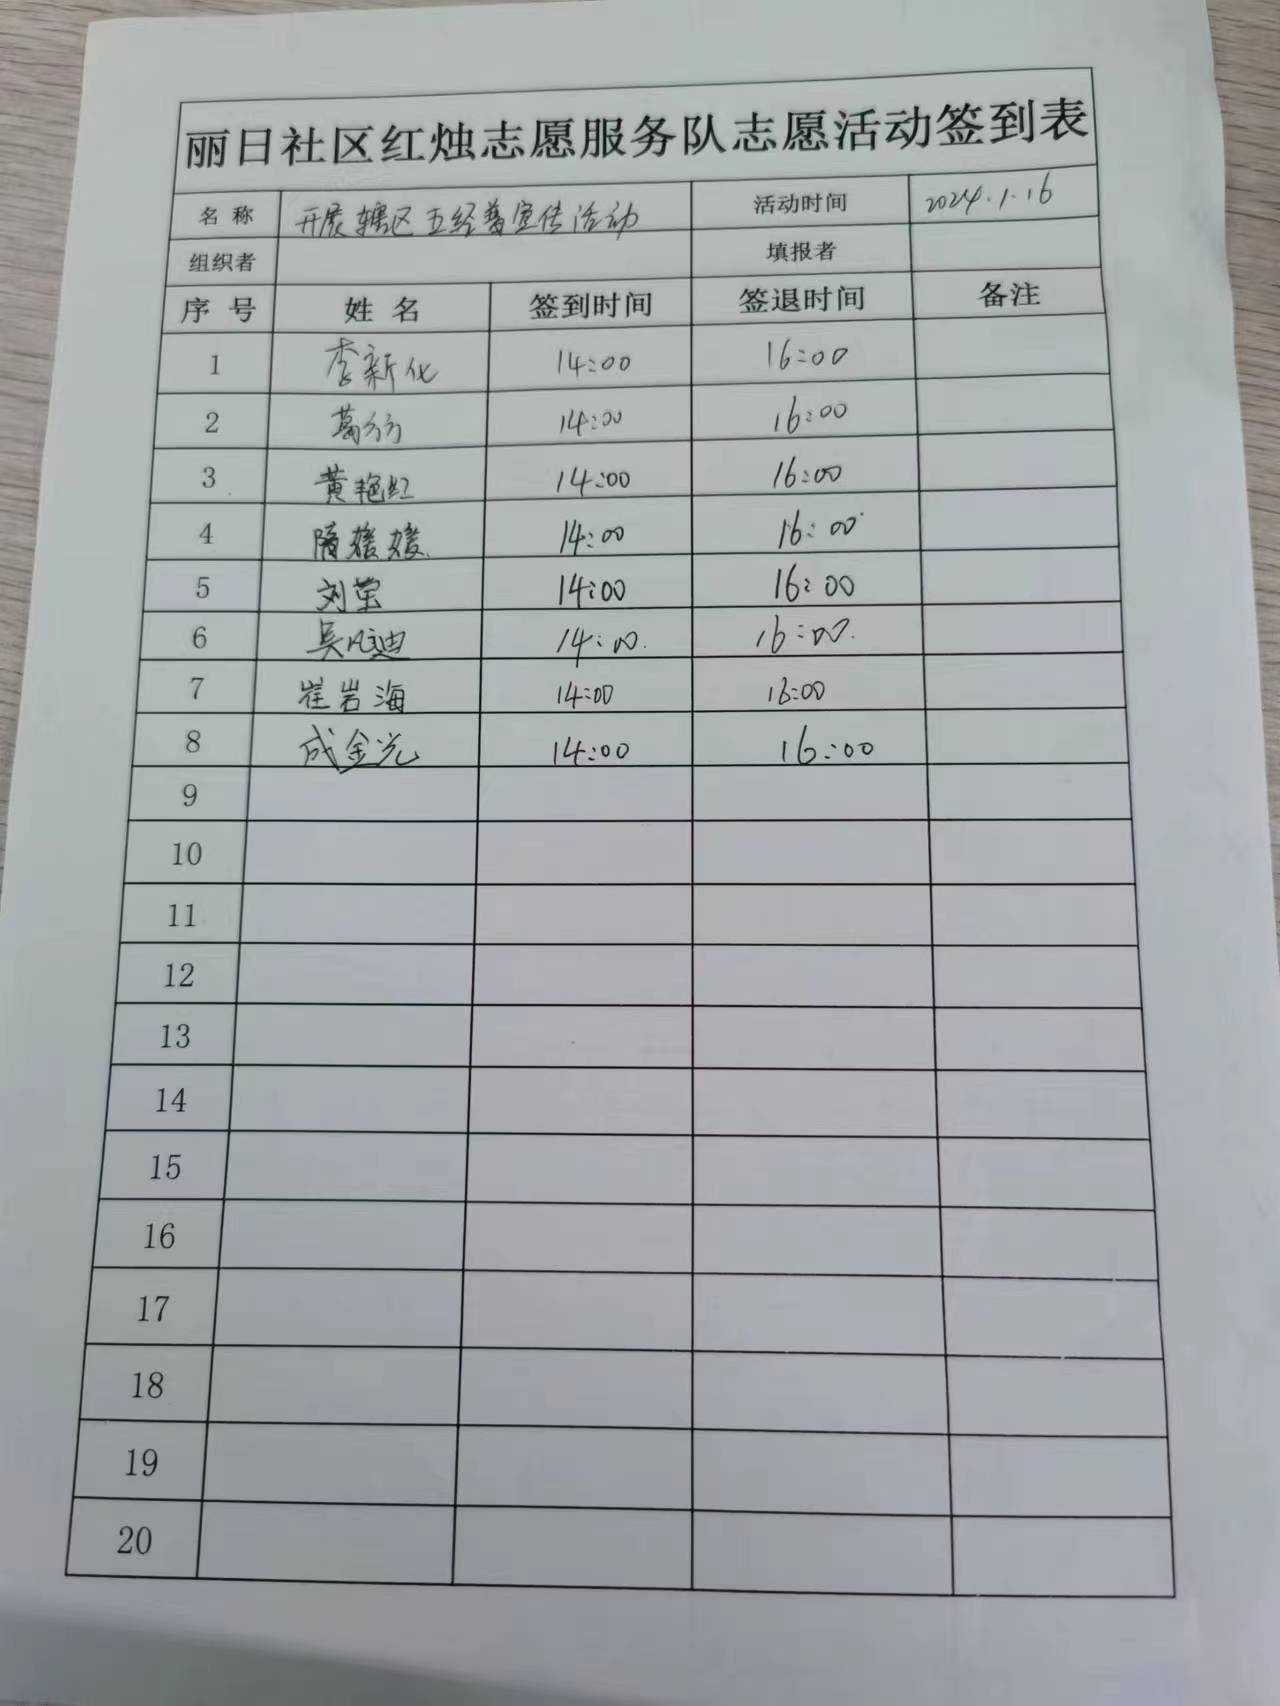 丽日社区红烛志愿服务队志愿活动签到表
名称 开展辖区五经普宣传活动 活动时间 2024.1.16
组织者 填报者
序号 姓名 签到时间 签退时间 备注
1 李新化 14:00 16:00
2 葛芳芳 14:00 16:00
3 黄艳红 14:00 16:00
4 隋媛媛 14:00 16:00
5 刘莹 14:00 16:00
6 吴风迪 14:00 16:00
7 崔岩海 14:00 16:00
8 成金光 14:00 16:00
9
10
11
12
13
14
15
16
17
18
19
20